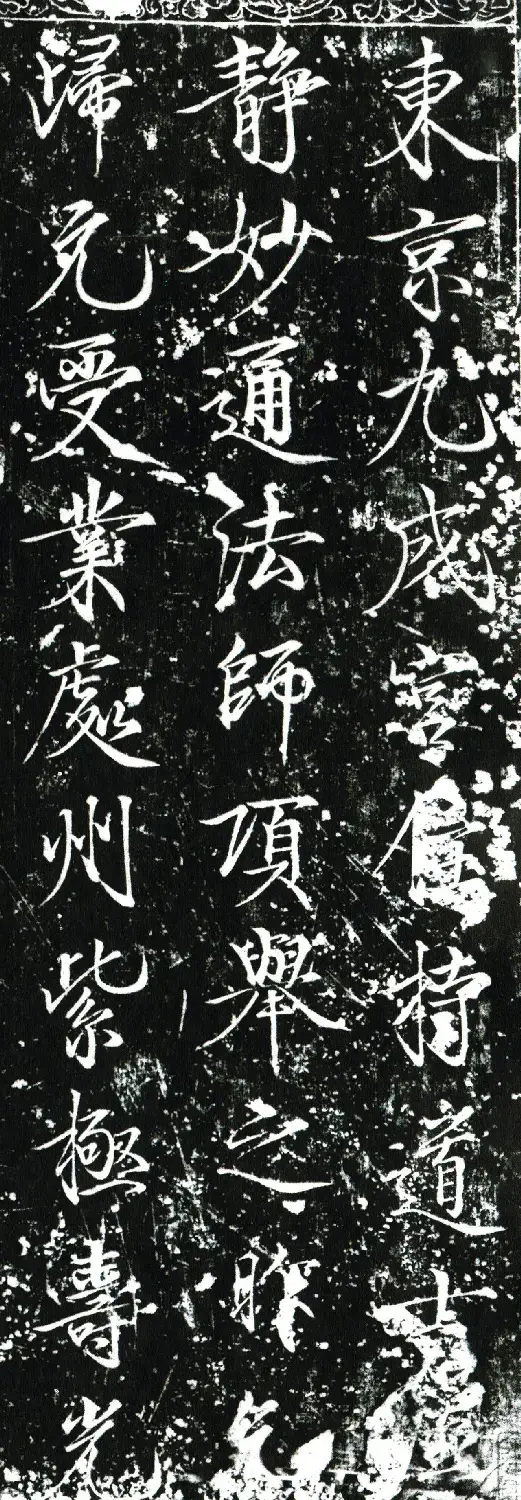 東京九成宮住持道士虛
静妙通法師項舉之昨乞
歸元受業處州紫極壽光